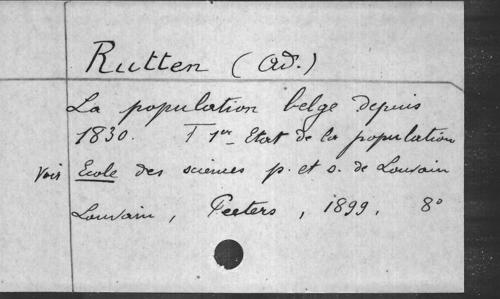 Rutten (Ad.)
La population belge depuis
1830. T 1er_ Etat de la population
Voir Ecole des sciences p. et s. de Louvain
Louvain, Peeters, 1899, 8°